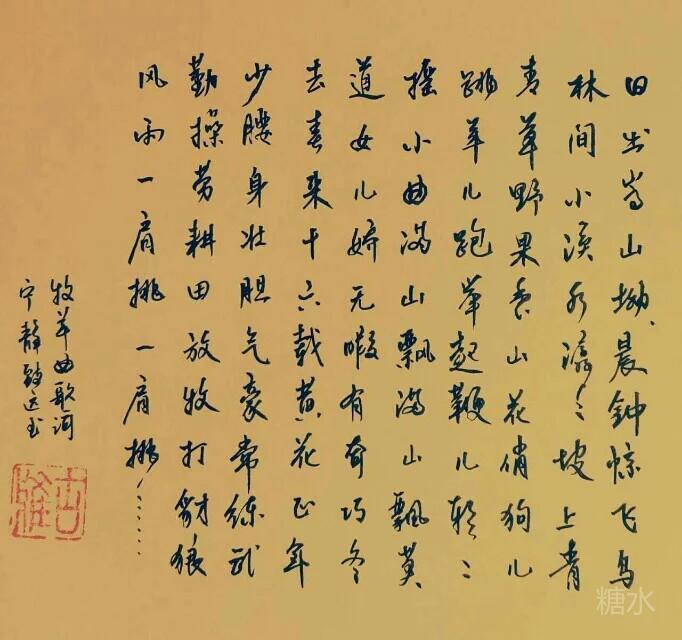 日出嵩山坳、晨钟惊飞鸟
林间小溪水潺〻坡上青
青草野果香山花俏狗儿
跳羊儿跑举起鞭儿轻〻
摇小曲满山飘满山飘莫
道女儿娇无暇有奇巧冬
去春来十六载黄花正年
少腰身壮胆气豪常练武
勤操劳耕田放牧打豺狼
风雨一肩挑一肩挑……
牧羊曲歌词
宁静致远书
糖水